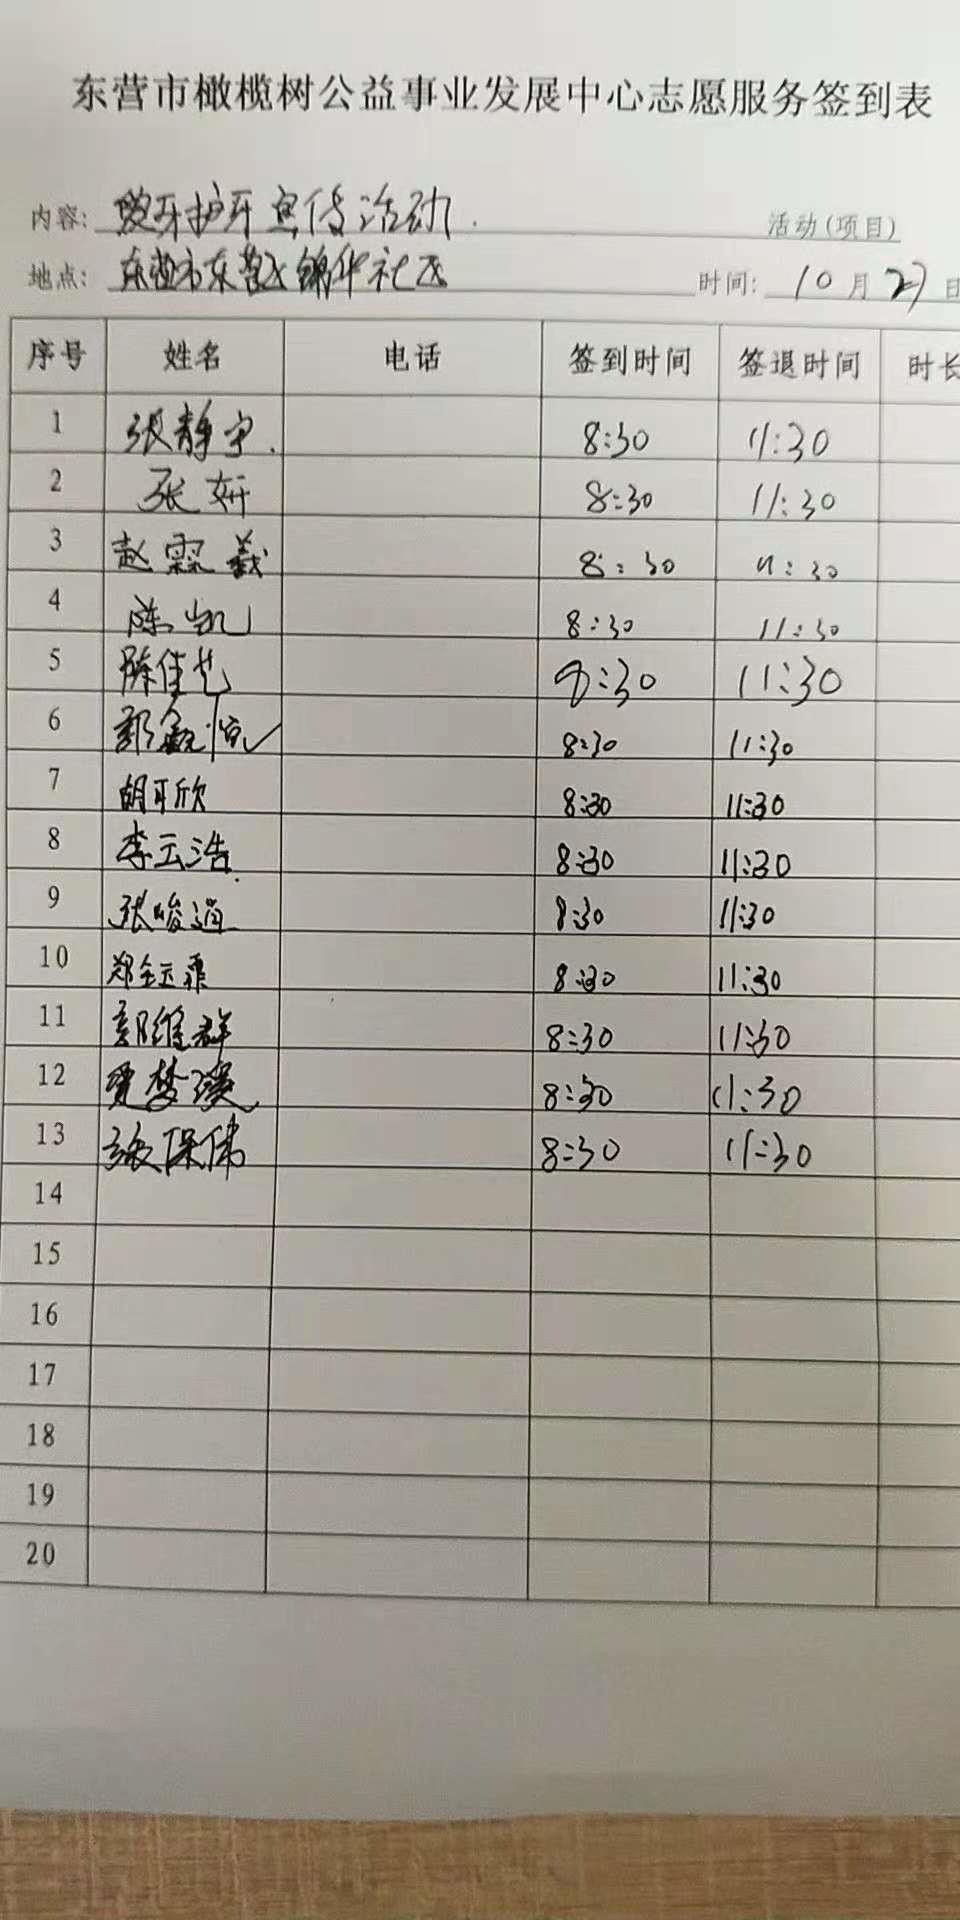 东营市橄榄树公益事业发展中心志愿服务签到表
内容: 爱牙护牙宣传活动 活动(项目)
地点: 东营市东营区锦华社区 时间: 10月27日
序号 姓名 电话 签到时间 签退时间 时长
1 张静宇 8:30 11:30
2 张妍 8:30 11:30
3 赵霖義 8:30 11:30
4 陈凯 8:30 11:30
5 陈佳艺 8:30 11:30
6 8:30 11:30
7 胡可欣 8:30 11:30
8 李云浩 8:30 11:30
9 张峻 8:30 11:30
10 郑钰霏 8:30 11:30
11 郭维群 8:30 11:30
12 贾梦 8:30 11:30
13 张保伟 8:30 11:30
14
15
16
17
18
19
20